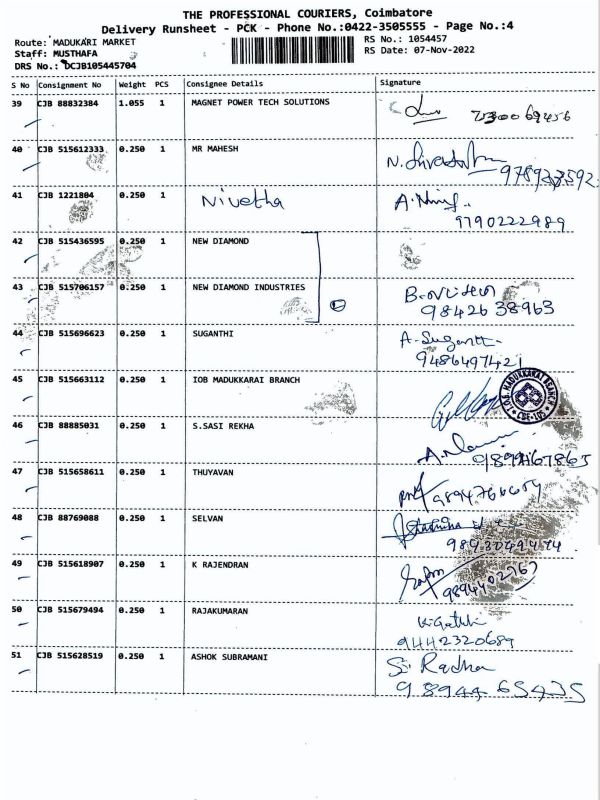 THE PROFESSIONAL COURIERS, Coimbatore
Delivery Runsheet - PCK - Phone No.:0422-3505555 - Page No.:4
Route: MADUKARI MARKET RS No.: 1054457
Staff: MUSTHAFA RS Date: 07-Nov-2022
DRS No.: DCJB105445704
S No Consignment No Weight PCS Consignee Details Signature
39 CJB 88832384 1.055 1 MAGNET POWER TECH SOLUTIONS
40 CJB 515612333 0.250 1 MR MAHESH
41 CJB 1221804 0.250 1 Nivetha
9790222989
42 CJB 515436595 0.250 1 NEW DIAMOND
43 CJB 515706157 0.250 1 NEW DIAMOND INDUSTRIES
9842638963
44 CJB 515696623 0.250 1 SUGANTHI A. Suganthi
9486497421
45 CJB 515663112 0.250 1 IOB MADUKKARAI BRANCH
46 CJB 88885031 0.250 1 S.SASI REKHA
47 CJB 515658611 0.250 1 THUYAVAN
48 CJB 88769088 0.250 1 SELVAN
49 CJB 515618907 0.250 1 K RAJENDRAN
9894402967
50 CJB 515679494 0.250 1 RAJAKUMARAN
9442320689
51 CJB 515628519 0.250 1 ASHOK SUBRAMANI S. Radha